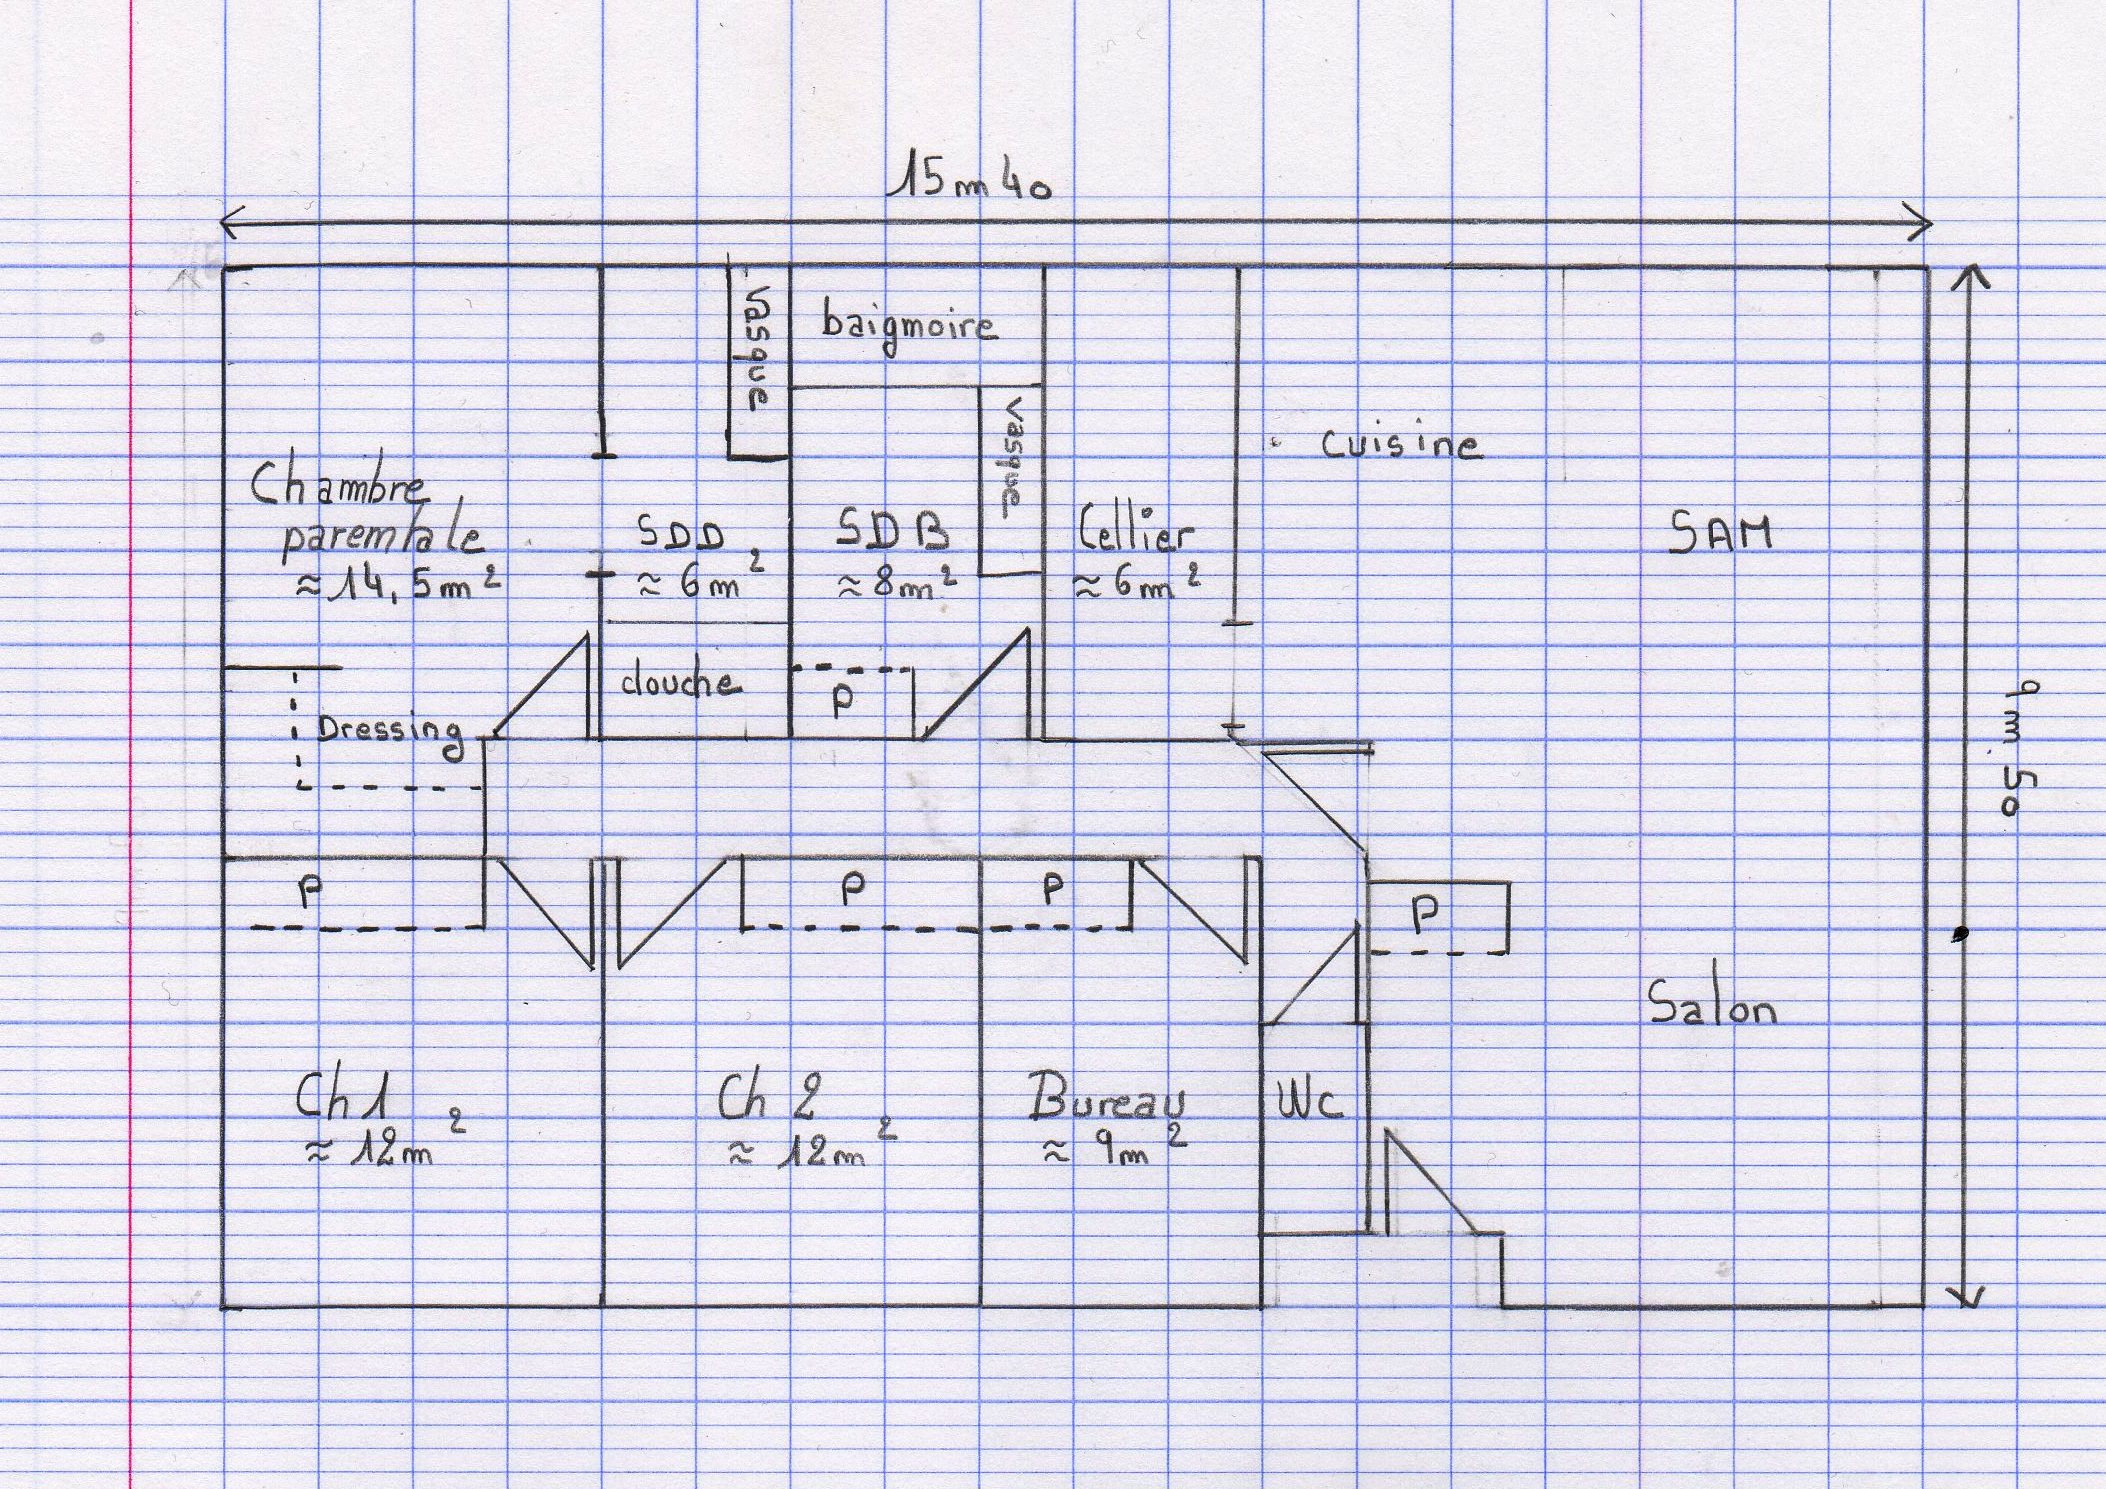 15m40
vasque
baignoire
vasque
cuisine
Chambre
parentale
≈ 14,5m²
SDD
≈ 6m²
SDB
≈ 8m²
Cellier
≈ 6m²
SAM
douche
P
Dressing
9m50
P
P
P
P
Salon
Ch1
≈ 12m²
Ch 2
≈ 12m²
Bureau
≈ 9m²
Wc